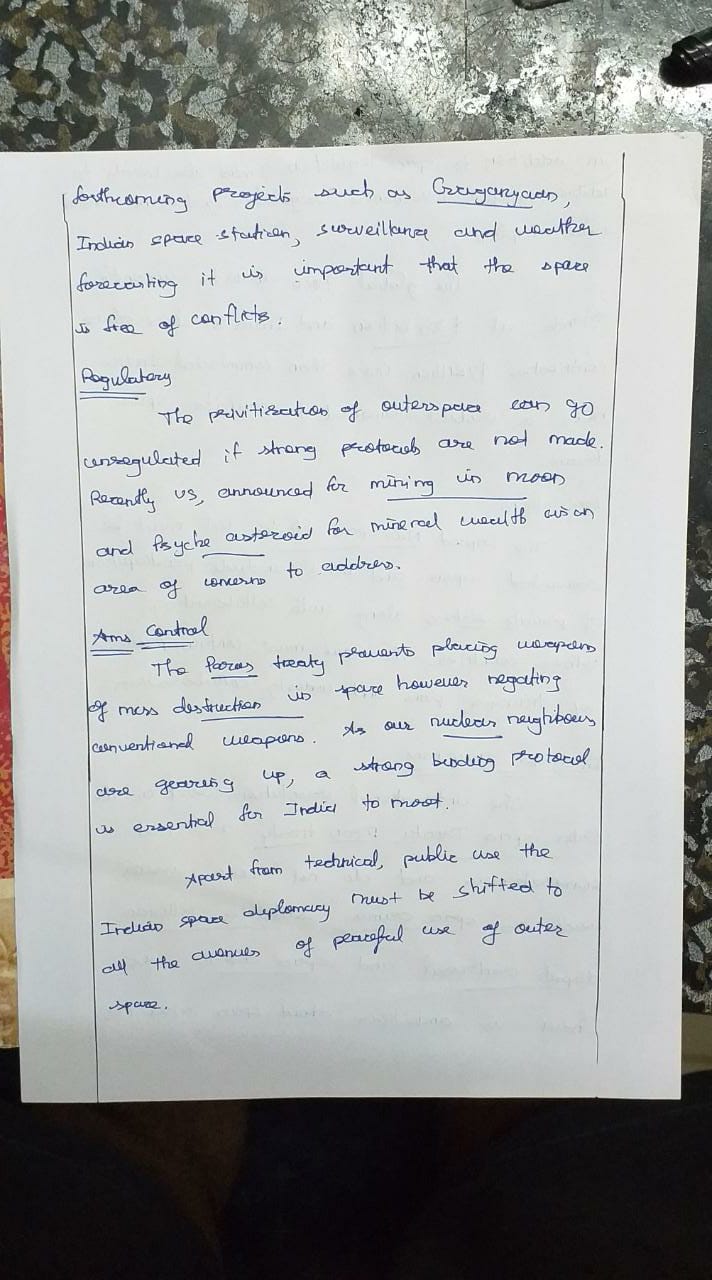 forthcoming projects such as Gaganyaan,
Indian space station, surveillance and weather
forecasting it is important that the space
is free of conflicts.
Regulatory
The privitization of outerspace can go
unregulated if strong protocols are not made.
Recently US, announced for mining in moon
and Psyche asteroid for mineral wealth is an
area of concerns to address.
Arms Control
The treaty prevents placing weapons
of mass destruction in space however negating
conventional weapons. As our nuclear neighbours
are gearing up, a strong binding protocol
is essential for India to moot.
Apart from technical, public use the
Indian space diplomacy must be shifted to
all the avenues of peaceful use of outer
space.